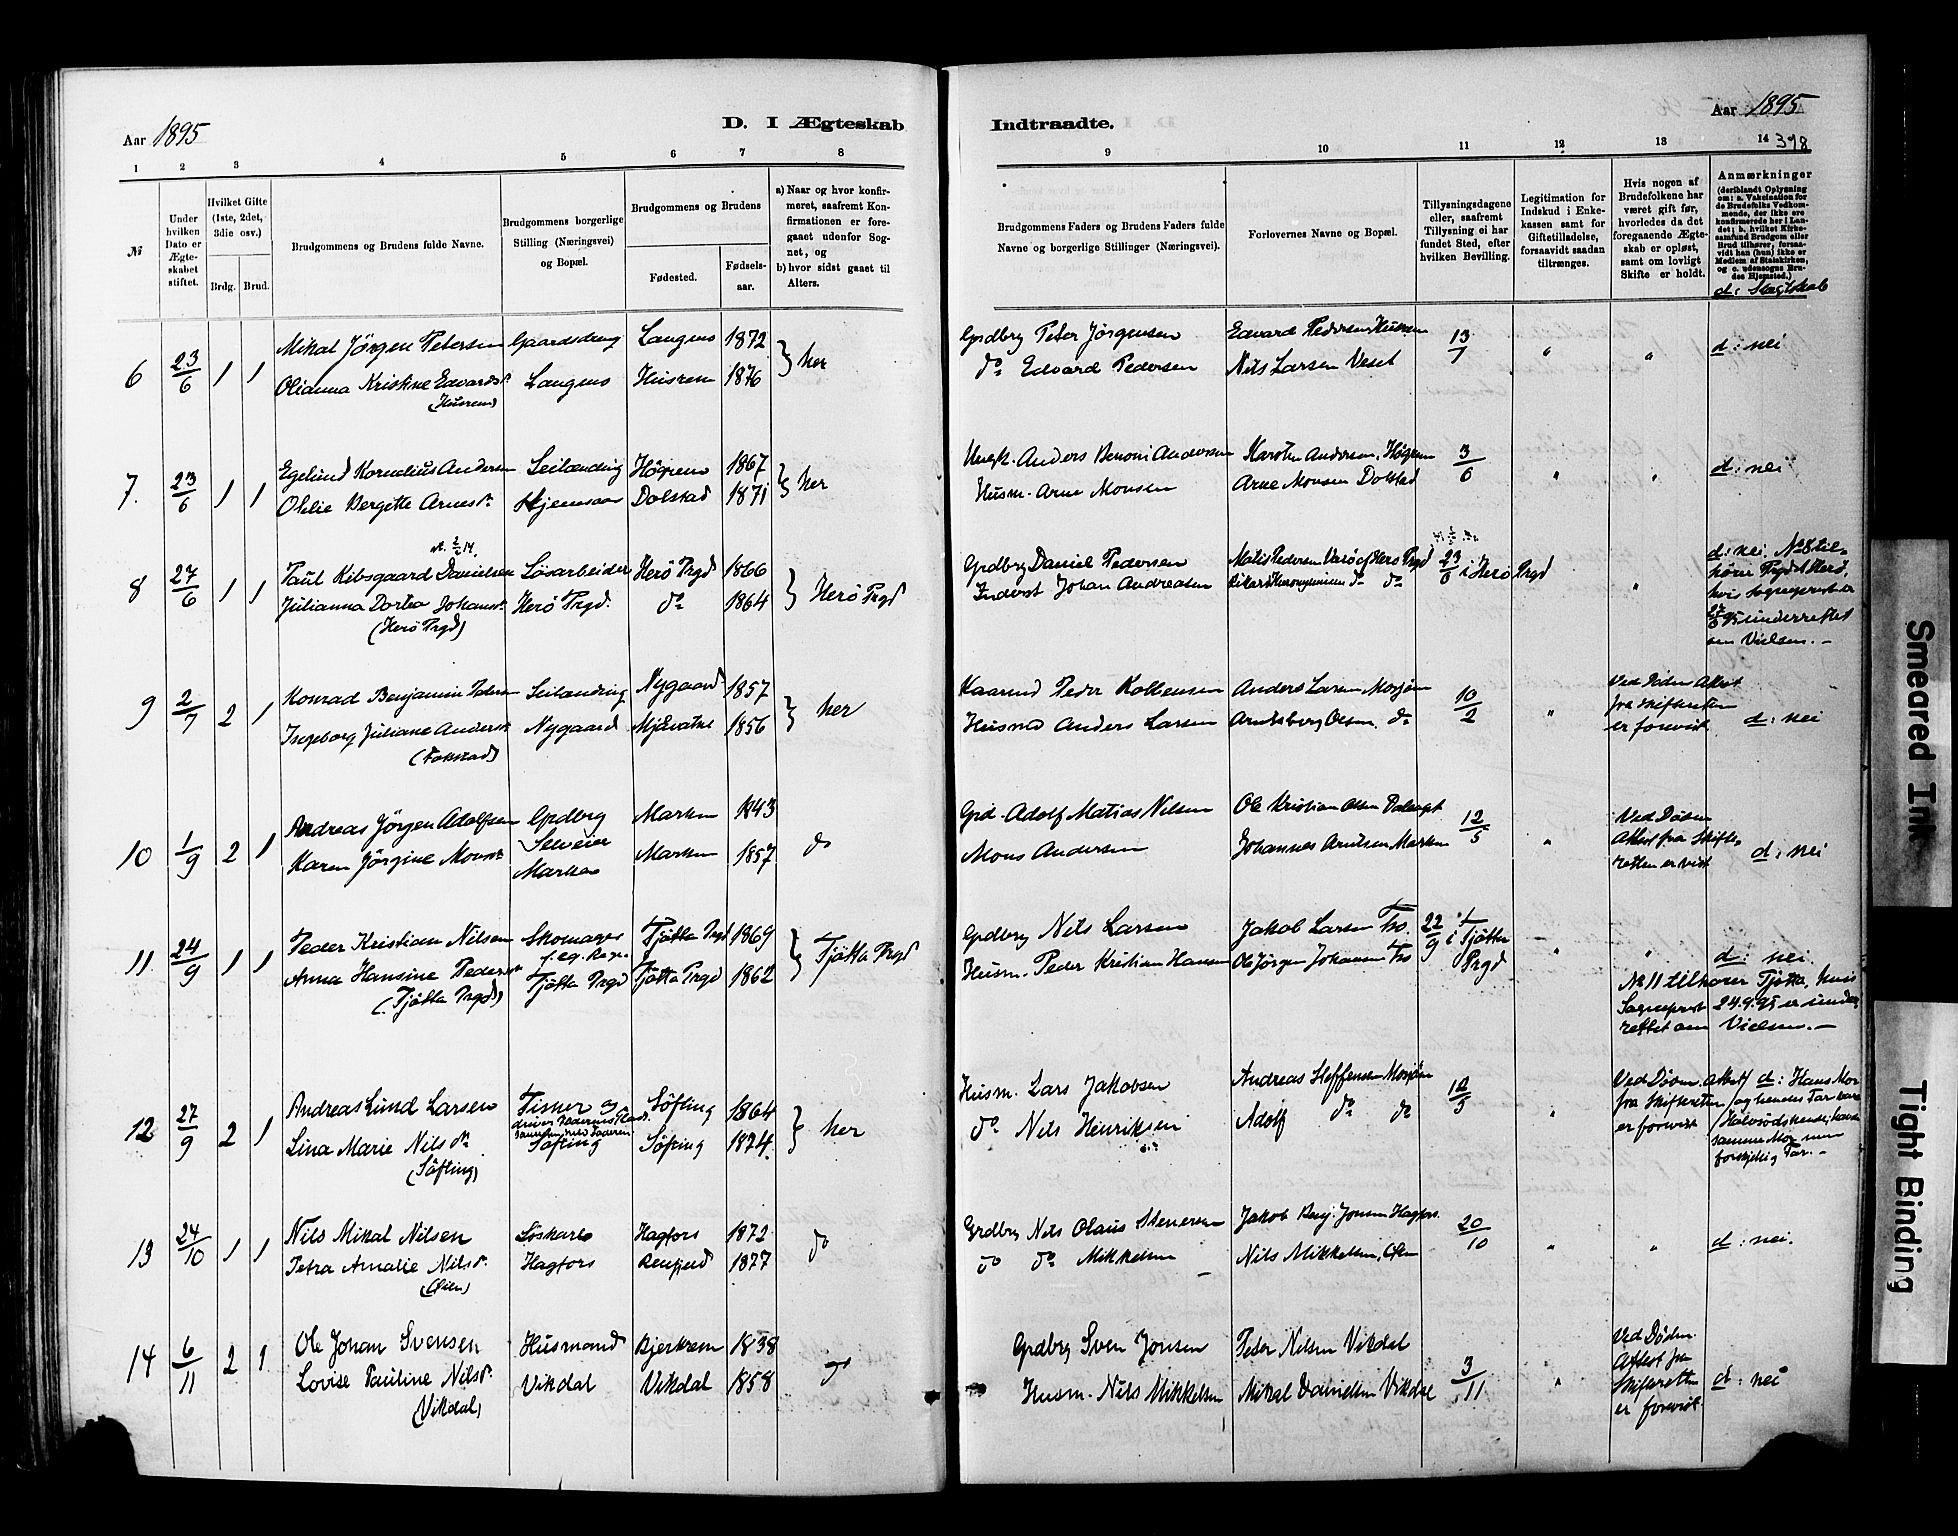 Aar 1895
D. I Ægteskab
Indtraadte.
Aar 1895
398
1 2 3 4 5 6 7 8 9 10 11 12 13 14
№
Under hvilken Dato er Ægteskabet stiftet.
Hvilket Gifte (1ste, 2det, 3die osv.)
Brdg. Brud.
Brudgommens og Brudens fulde Navne.
Brudgommens borgerlige Stilling (Næringsvei) og Bopæl.
Brudgommens og Brudens
Fødested. Fødselsaar.
a) Naar og hvor konfirmeret, saafremt Konfirmationen er foregaaet udenfor Sognet, og
b) hvor sidst gaaet til Alters.
Brudgommens Faders og Brudens Faders fulde Navne og borgerlige Stillinger (Næringsvei).
Forlovernes Navne og Bopæl.
Tillysningsdagene eller, saafremt Tillysning ei har fundet Sted, efter hvilken Bevilling.
Legitimation for Indskud i Enkekassen samt for Giftetilladelse, forsaavidt saadan tiltrænges.
Hvis nogen af Brudefolkene har været gift før, hvorledes da det foregaaende Ægteskab er opløst, samt om lovligt Skifte er holdt.
Anmærkninger
(deriblandt Oplysning om: a. Vakcination for de Brudefolks Vedkommende, der ikke ere konfirmerede her i Landet; b. hvilket Kirkesamfund Brudgom eller Brud tilhører, forsaavidt han (hun) ikke er Medlem af Statskirken, og c. udensogns Brudes Hjemsted.)
d: Slægtskab
6 23/6 1 1 Mikal Jörgen Petersen Gaardsdreng Langnes 1872 } her Grdbrg Peter Jörgensen Edvard Pedersen Husrem 13/ d: nei
Olianna Kristine Edvardsd. Langnes Husrem 1876 do Edvard Pedersen Nils Larsen Veset
(Husrem)
7. 23/6 1 1 Egelund Kornelius Andersen Seilænding 1867 } her Anders Benoni Andersen Karsten Andersen 3/6 " " d: nei
Bergitte Arnesd. Dolstad 1871 Husm. Arne Monsen Arne Monsen Dolstad
8 27/6 1 1 Paul Kibsgaard Danielsen Løsarbeider Herö Prgd 1866 } Herö Prgd Grdbrg Daniel Pedersen 23/6 i Herö Prgd " d: nei. No 8 til-
Julianna Dortea Johansd. Herö Prgd. do 1864 Inderst Johan Andreasen do do hörer Prgdt Herö,
(Herö Prgd) hvis Sogneprest er
underrettet
om Vielsen. –
9 2/7 2 1 Konrad Benjamin Seilænding Nygaard 1857 } her Kaarmd Peder Anders Larsen Mosjøen 10/2 " Ved Döden Attest
Ingeborg Juliane Andersd. Nygaard 1856 Husmd Anders Larsen Arntsberg Olsen do fra Skifteretten
er forevist d: nei
10 1/9 2 1 Andreas Jörgen Adolfsen Grdbrg Marken 1843 do Grd. Adolf Matias Nilsen Ole Kristian Olsen 12/5 " Ved Döden
Karen Jörgine Monsd. Selveier Marken 1857 Mons Andersen Johannes Arntsen Marken Attest fra Skifte-
Marken retten er vist d: nei
11. 24/9 1 1 Peder Kristian Nilsen Skomager Tjötta Prgd 1869 } Tjötta Prgd Grdbrg Nils Larsen Jakob Larsen Tro. 22/9 i Tjötta Prgd " d: nei
Anna Hansine Pedersd. Tjötta Prgd Tjötta Prgd 1862 Husm. Peder Kristian Hansen Ole Jörgen Johansen Tro
(Tjötta Prgd) No 11 tilhorer Tjötta, hvis
Sogneprest 24.9.95 er under-
rettet om Vielsen. –
12 27/9 2 1 Andreas Lund Larsen Söfting 1864 } her Husm. Lars Jakobsen Andreas Steffensen Mosjøen " Ved Döden. Attest d: Hans Mor
Lina Marie Nilsd. Söfting Söfting 1874. do Nils Henriksen Adolf do do fra Skifteretten og hendes Far vare
(Söfting) er forevist Halvsödskende; havde
samme Mor men
forskjellig Far. –
13 24/10 1 1 Nils Mikal Nilsen Löskarl Hagfors 1872 do Grdbrg Nils Olaus Stenersen Jakob Benj. Jonsen Hagfors. 20/10 " " d: nei.
Petra Amalie Nilsd. Hagfors 1877 do do Mikkelsen Nils Mikkelsen,
14 6/11 2 1 Ole Johan Svensen Husmand Bjerkrem 1838 do Grdbrg Sven Jonsen Peter Nilsen Vikdal 3/11 " Ved Döden.
Lovise Pauline Nilsd. Vikdal Vikdal 1858 Husm. Nils Mikkelsen Mikal Danielsen Vikdal Attest fra
(Vikdal) Skifteretten
er forevist. d: nei
Smeared Ink
Tight Binding